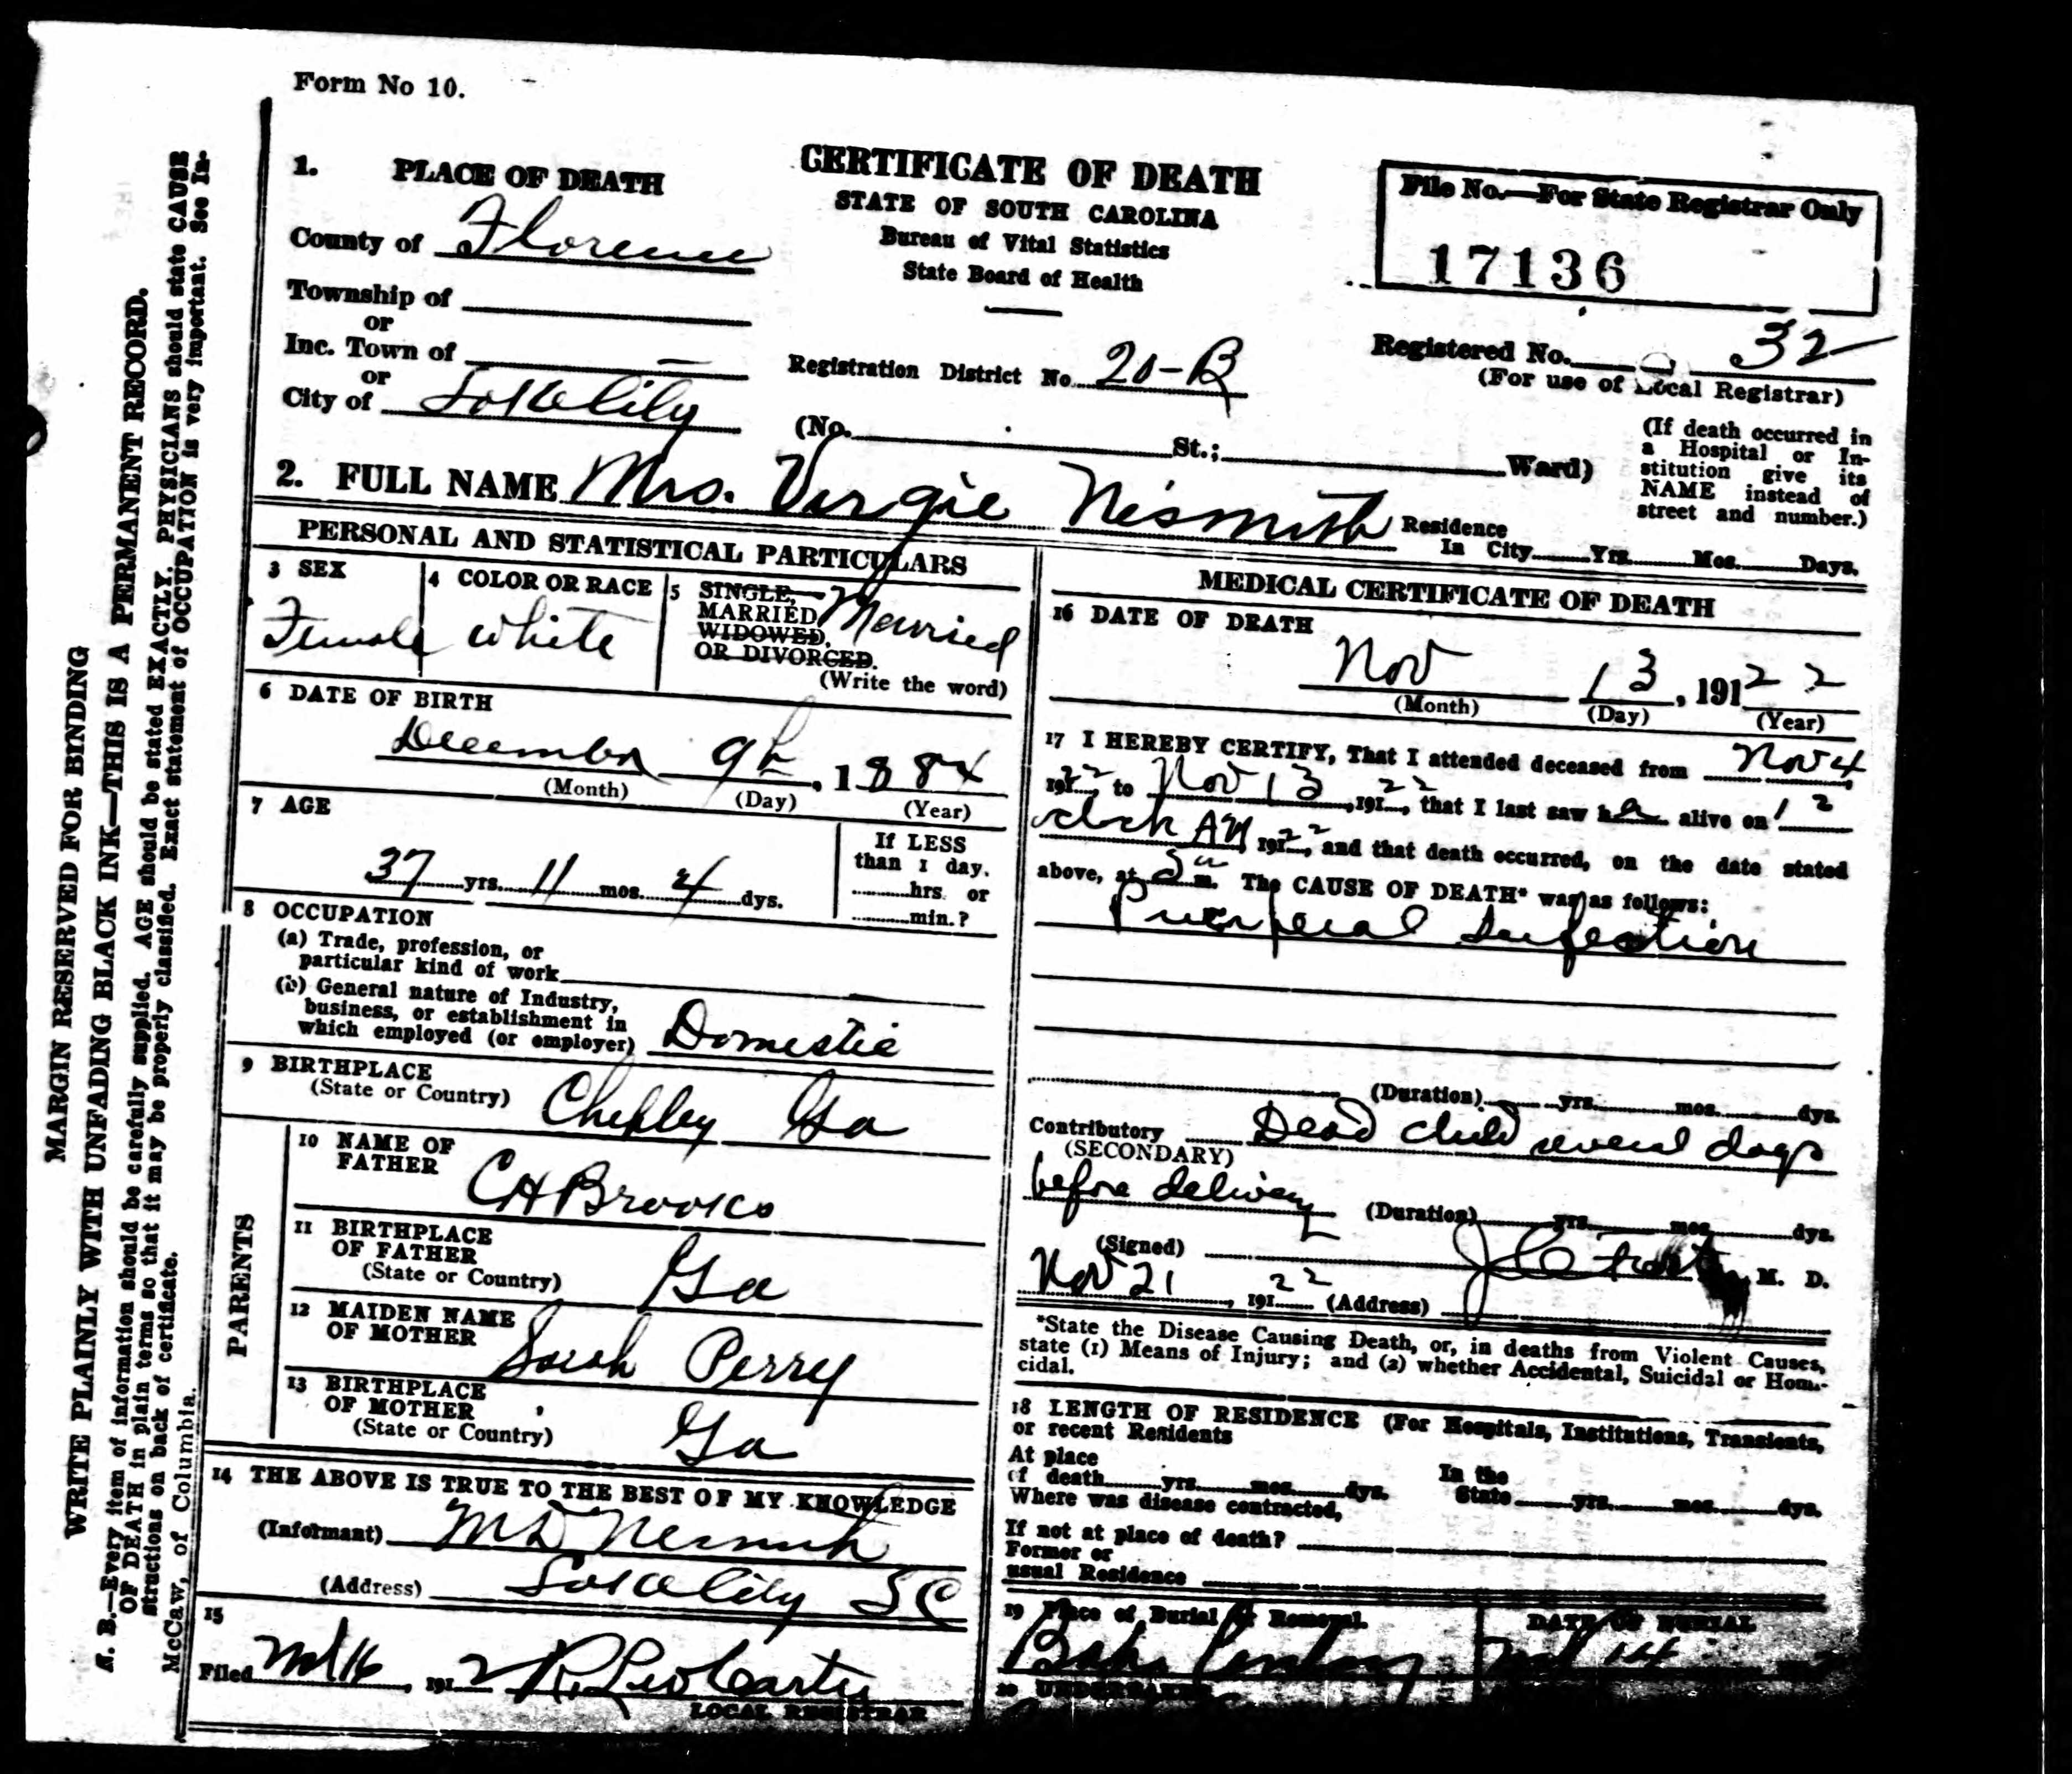 Form No 10.
1. PLACE OF DEATH
County of Florence
Township of
or
Inc. Town of —
or
City of
CERTIFICATE OF DEATH
STATE OF SOUTH CAROLINA
Bureau of Vital Statistics
State Board of Health
Registration District No. 20-B
File No.—For State Registrar Only
17136
Registered No. 32
(For use of Local Registrar)
(No. St.; Ward)
(If death occurred in
a Hospital or In-
stitution give its
NAME instead of
street and number.)
2. FULL NAME Mrs. Virgie Nesmith
Residence
In City Yrs. Mos. Days.
PERSONAL AND STATISTICAL PARTICULARS
3 SEX
Female
4 COLOR OR RACE
white
5 SINGLE,
MARRIED
WIDOWED,
OR DIVORCED.
Married
(Write the word)
6 DATE OF BIRTH
December 9th, 1884
(Month) (Day) (Year)
7 AGE
37 yrs. 11 mos. 4 dys.
If LESS
than 1 day.
hrs. or
min.?
8 OCCUPATION
(a) Trade, profession, or
particular kind of work
(b) General nature of Industry,
business, or establishment in
which employed (or employer) Domestic
9 BIRTHPLACE
(State or Country) Chipley Ga
PARENTS
10 NAME OF
FATHER C H Brooks
11 BIRTHPLACE
OF FATHER
(State or Country) Ga
12 MAIDEN NAME
OF MOTHER Sarah Perry
13 BIRTHPLACE
OF MOTHER
(State or Country) Ga
14 THE ABOVE IS TRUE TO THE BEST OF MY KNOWLEDGE
(Informant) M D Nesmith
(Address) SC
15
Filed 16, 1912 R Leo Carter
LOCAL REGISTRAR
MEDICAL CERTIFICATE OF DEATH
16 DATE OF DEATH
Nov 13, 19122
(Month) (Day) (Year)
17 I HEREBY CERTIFY, That I attended deceased from Nov 4,
191 22, to Nov 13, 191 22, that I last saw h alive on 12
clock AM, 191 22, and that death occurred, on the date stated
above, at m. The CAUSE OF DEATH* was as follows:
Puerperal Infection
(Duration) yrs. mos. dys.
Contributory Dead child several days
(SECONDARY)
before delivery
(Duration) yrs. mos. dys.
(Signed) M. D.
Nov 21, 191 22 (Address)
*State the Disease Causing Death, or, in deaths from Violent Causes,
state (1) Means of Injury; and (2) whether Accidental, Suicidal or Homi-
cidal.
18 LENGTH OF RESIDENCE (For Hospitals, Institutions, Transients,
or recent Residents
At place
of death yrs. mos. dys.
In the
State yrs. mos. dys.
Where was disease contracted,
If not at place of death?
Former or
usual Residence
19 Place of Burial or Removal.
DATE OF BURIAL
14
20 UNDERTAKER
MARGIN RESERVED FOR BINDING
WRITE PLAINLY WITH UNFADING BLACK INK—THIS IS A PERMANENT RECORD.
N. B.—Every item of information should be carefully supplied. AGE should be stated EXACTLY. PHYSICIANS should state CAUSE
OF DEATH in plain terms so that it may be properly classified. Exact statement of OCCUPATION is very important. See In-
structions on back of certificate.
McCaw, of Columbia.